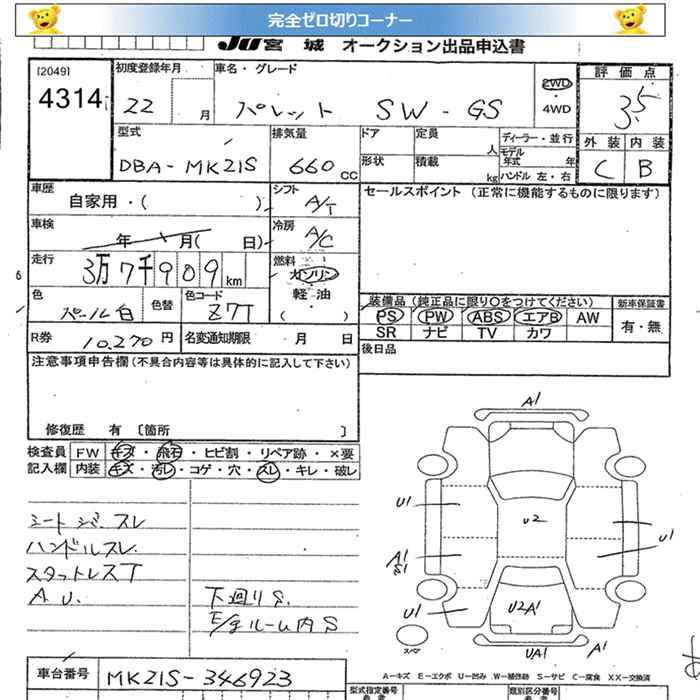 完全ゼロ切りコーナー
JU宮城 オークション出品申込書
[2049]
4314
初度登録年月
22 月
車名・グレード
パレット SW-GS
2WD
・
4WD
評価点
3.5
外装 内装
C B
型式
DBA-MK21S
排気量
660 cc
ドア
形状
定員 人
積載 kg
ディーラー・並行
モデル
年式 年
ハンドル 左・右
車歴
自家用・( )
シフト
A/T
セールスポイント (正常に機能するものに限ります)
車検
年 月( 日)
冷房
A/C
走行
3万7千909km
燃料
ガソリン
軽・油
( )
色
パール白
色替
色コード
Z7T
装備品(純正品に限り○をつけてください)
PS PW ABS エアB AW
SR ナビ TV カワ
新車保証書
有・無
R券
10,270円
名変通知期限 月 日
後日品
注意事項申告欄(不具合内容等は具体的に記入して下さい)
修復歴 有 [箇所 ]
検査員
記入欄
FW キズ・飛石・ヒビ割・リペア跡・×要
内装 キズ・汚レ・コゲ・穴・スレ・キレ・破レ
シートシワ スレ
ハンドルスレ
スタットレスT
A.U.
下廻りS.
E/gルーム内S
A1
U1
U2
A1
S1
U1
U1
U2A1
UA1
A1
スペア
A-キズ E-エクボ U-凹み W-補修跡 S-サビ C-腐食 XX-交換済
車台番号
MK21S-346923
型式指定番号
類別区分番号